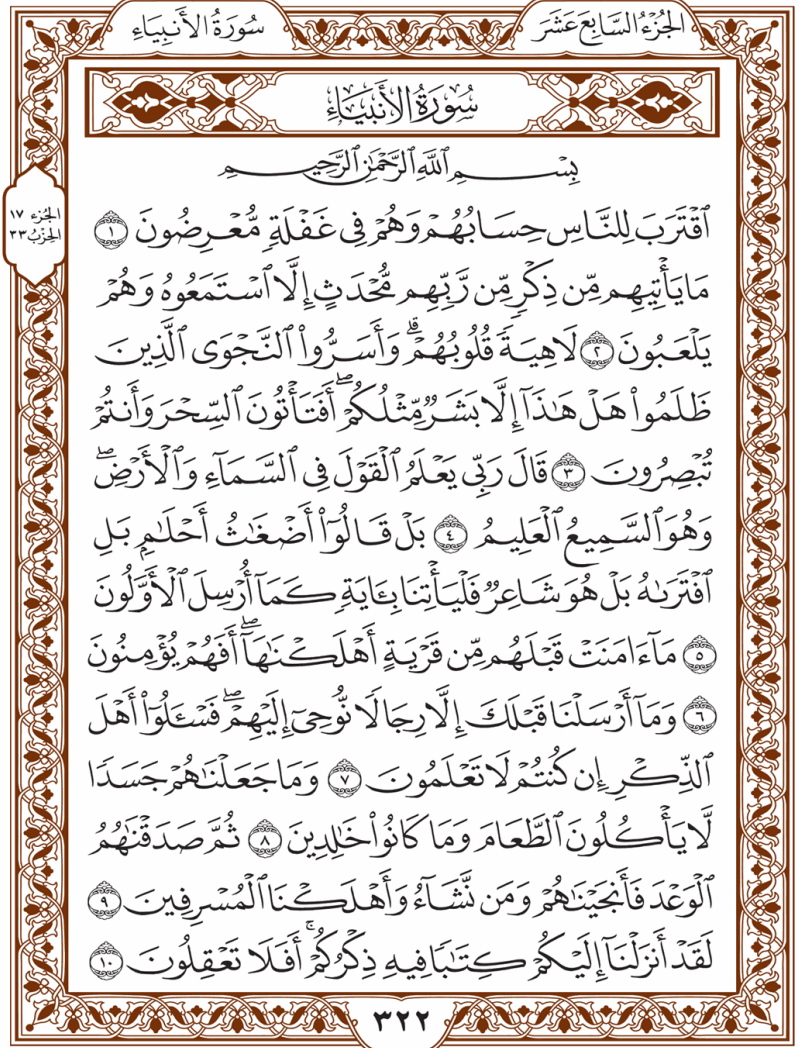 الجُزْءُ السَّابِعَ عَشَرَ
سُورَةُ الأَنبِيَاءِ
سُورَةُ الأَنبِيَاءِ
بِسْمِ ٱللَّهِ ٱلرَّحْمَٰنِ ٱلرَّحِيمِ
الجُزء ١٧
الحِزبُ ٣٣
ٱقْتَرَبَ لِلنَّاسِ حِسَابُهُمْ وَهُمْ فِى غَفْلَةٍ مُّعْرِضُونَ ١
مَا يَأْتِيهِم مِّن ذِكْرٍ مِّن رَّبِّهِم مُّحْدَثٍ إِلَّا ٱسْتَمَعُوهُ وَهُمْ
يَلْعَبُونَ ٢ لَاهِيَةً قُلُوبُهُمْ ۗ وَأَسَرُّوا۟ ٱلنَّجْوَى ٱلَّذِينَ
ظَلَمُوا۟ هَلْ هَٰذَآ إِلَّا بَشَرٌ مِّثْلُكُمْ ۖ أَفَتَأْتُونَ ٱلسِّحْرَ وَأَنتُمْ
تُبْصِرُونَ ٣ قَالَ رَبِّى يَعْلَمُ ٱلْقَوْلَ فِى ٱلسَّمَآءِ وَٱلْأَرْضِ ۖ
وَهُوَ ٱلسَّمِيعُ ٱلْعَلِيمُ ٤ بَلْ قَالُوٓا۟ أَضْغَٰثُ أَحْلَٰمٍۭ بَلِ
ٱفْتَرَىٰهُ بَلْ هُوَ شَاعِرٌ فَلْيَأْتِنَا بِـَٔايَةٍ كَمَآ أُرْسِلَ ٱلْأَوَّلُونَ
٥ مَآ ءَامَنَتْ قَبْلَهُم مِّن قَرْيَةٍ أَهْلَكْنَٰهَآ ۖ أَفَهُمْ يُؤْمِنُونَ
٦ وَمَآ أَرْسَلْنَا قَبْلَكَ إِلَّا رِجَالًا نُّوحِىٓ إِلَيْهِمْ ۖ فَسْـَٔلُوٓا۟ أَهْلَ
ٱلذِّكْرِ إِن كُنتُمْ لَا تَعْلَمُونَ ٧ وَمَا جَعَلْنَٰهُمْ جَسَدًا
لَّا يَأْكُلُونَ ٱلطَّعَامَ وَمَا كَانُوا۟ خَٰلِدِينَ ٨ ثُمَّ صَدَقْنَٰهُمُ
ٱلْوَعْدَ فَأَنجَيْنَٰهُمْ وَمَن نَّشَآءُ وَأَهْلَكْنَا ٱلْمُسْرِفِينَ ٩
لَقَدْ أَنزَلْنَآ إِلَيْكُمْ كِتَٰبًا فِيهِ ذِكْرُكُمْ ۖ أَفَلَا تَعْقِلُونَ ١٠
٣٢٢